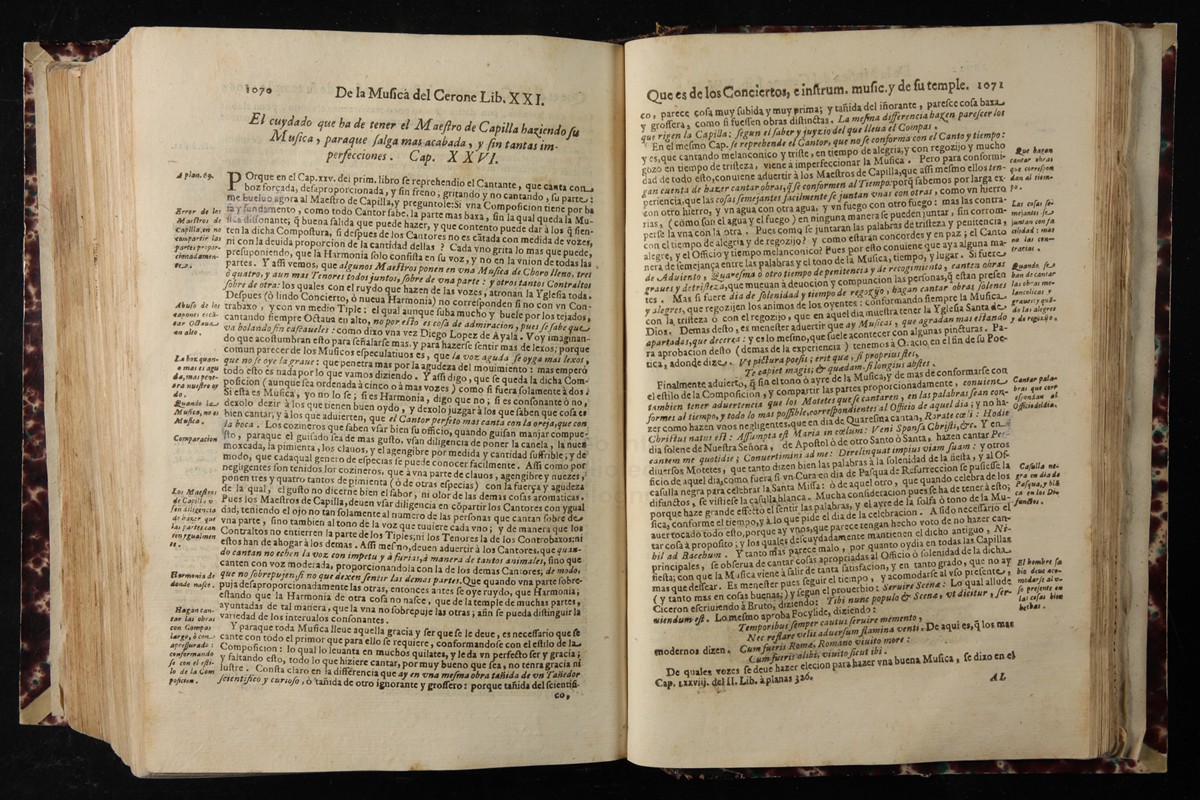 1070 De la Musica del Cerone Lib. XXI.
El cuydado que ha de tener el Maestro de Capilla haziendo su
Musica, paraque salga mas acabada, y sin tantas im-
perfecciones. Cap. XXVI.
A plan. 69.
POrque en el Cap.xxv. del prim. libro se reprehendio el Cantante, que canta con
boz forçada, desaproporcionada, y sin freno, gritando y no cantando, su parte:
me bueluo agora al Maestro de Capilla, y preguntole: Si vna Composicion tiene por ba
sa y fundamento, como todo Cantor sabe, la parte mas baxa, sin la qual queda la Mu-
sica dissonante; q̃ buena salida que puede hazer, y que contento puede dar à los q̃ sien-
ten la dicha Compostura, si despues de los Cantores no es cãtada con medida de vozes,
ni con la deuida proporcion de la cantidad dellas? Cada vno grita lo mas que puede,
presuponiendo, que la Harmonia solo consista en su voz, y no en la vnion de todas las
partes. Y assi vemos, que algunos Maestros ponen en vna Musica de Choro lleno, tres
ò quatro, y aun mas Tenores todos juntos, sobre de vna parte: y otros tantos Contraltos
sobre de otra: los quales con el ruydo que hazen de las vozes, atronan la Yglesia toda.
Error de los
Maestros de
Capilla, en no
compartir las
partes propor-
cionadamen-
te.
Despues (ò lindo Concierto, ò nueua Harmonia) no corresponden si no con vn Con-
trabaxo, y con vn medio Tiple: el qual aunque suba mucho y buele por los tejados,
cantando siempre Octaua en alto, no por esto es cosa de admiracion, pues se sabe que
va bolando sin cascaueles: como dixo vna vez Diego Lopez de Ayala. Voy imaginan-
do que acostumbran esto para señalarse mas, y para hazerse sentir mas de lexos; porque
comun parecer de los Musicos especulatiuos es, que la voz aguda se oyga mas lexos,
que no se oye la graue: que penetra mas por la agudeza del mouimiento: mas empero
todo esto es nada por lo que vamos diziendo. Y assi digo, que se queda la dicha Com-
posicion (aunque sea ordenada à cinco ò a mas vozes) como si fuera solamente à dos:
Si esta es Musica, yo no lo se; si es Harmonia, digo que no; si es consonante ò no,
dexolo dezir à los que tienen buen oydo, y dexolo juzgar à los que saben que cosa es
bien cantar; y à los que aduierten, que el Cantor perfeto mas canta con la oreja, que con
la boca. Los cozineros que saben vsar bien su officio, quando guisan manjar compue-
sto, paraque el guisado sea de mas gusto, vsan diligencia de poner la canela, la nuez
moxcada, la pimienta, los clauos, y el agengibre por medida y cantidad suffrible; y de
modo, que cadaqual genero de especias se puede conocer facilmente. Assi como por
negligentes son tenidos los cozineros, que à vna parte de clauos, agengibre y nuezes,
ponen tres y quatro tantos de pimienta (ò de otras especias) con la fuerça y agudeza
de la qual, el gusto no dicerne bien el sabor, ni olor de las demas cosas aromaticas.
Abuso de los
capones es cã-
tar Octaua
en alto.
La boz quan-
o mas es agu
da, mas pene-
tra nuestro oy
do.
Quando la
Musica, no es
Musica.
Comparacion
Pues los Maestros de Capilla, deuen vsar diligencia en cõpartir los Cantores con ygual
dad, teniendo el ojo no tan solamente al numero de las personas que cantan sobre de
vna parte, sino tambien al tono de la voz que tuuiere cada vno; y de manera que los
Contraltos no entierren la parte de los Tiples; ni los Tenores la de los Controbaxos; ni
estos han de ahogar à los demas. Assi mesmo, deuen aduertir à los Cantores, que quan-
do cantan no echen la voz con impetu y à furias, à manera de tantos animales, sino que
canten con voz moderada, proporcionandola con la de los demas Cantores; de modo,
que no sobrepujen, si no que dexen sentir las demas partes. Que quando vna parte sobre-
puja desaproporcionadamente las otras, entonces antes se oye ruydo, que Harmonia;
estando que la Harmonia de otra cosa no nasce, que de la temple de muchas partes,
ayuntadas de tal manera, que la vna no sobrepuje las otras; afin se pueda distinguir la
variedad de los interualos consonantes.
Los Maestros
de Capilla v-
sen diligencia
de hazer que
las partes can
ten ygualmen
te.
Harmonia de
donde nasce.
Y paraque toda Musica lleue aquella gracia y ser que se le deue, es necessario que se
cante con todo el primor que para ello se requiere, conformandose con el estilo de la
Composicion: lo qual lo leuanta en muchos quilates, y le da vn perfecto ser y gracia;
y faltando esto, todo lo que hiziere cantar, por muy bueno que sea, no tenra gracia ni
lustre. Consta claro en la differencia que ay en vna mesma obra tañida de vn Tañedor
scientifico y curioso, ò tañida de otro ignorante y grossero: porque tañida del scientifi-
co,
Hagan can-
tar las obras
con Compas
largo, ò con
apressurado:
conformando
se con el esti-
lo de la Com
posicion.
Que es de los Conciertos, e instrum. music. y de su temple. 1071
co, parece cosa muy subida y muy prima; y tañida del iñorante, paresce cosa baxa
y grossera, como si fuessen obras distinctas. La mesma differencia hagen parescer los
que rigen la Capilla: segun el saber y juyzio del que lleua el Compas.
En el mesmo Cap. se reprehende el Cantor, que no se conforma con el Canto y tiempo:
y es, que cantando melanconico y triste, en tiempo de alegria; y con regozijo y mucho
gozo en tiempo de tristeza, viene à imperfeccionar la Musica. Pero para conformi-
dad de todo esto, conuiene aduertir à los Maestros de Capilla, que assi mesmo ellos ten-
gan cuenta de hazer cantar obras, q̃ se conformen al Tiempo: porq̃ sabemos por larga ex-
periencia, que las cosas semejantes facilmente se juntan vnas con otras, como vn hierro
con otro hierro, y vn agua con otra agua, y vn fuego con otro fuego: mas las contra-
rias, (cómo son el agua y el fuego) en ninguna manera se pueden juntar, sin corrom-
perse la vna con la otra. Pues como se juntaran las palabras de tristeza y penitencia,
con el tiempo de alegria y de regozijo? y como estaràn concordes y en paz; el Canto
alegre, y el Officio y tiempo melanconico? Pues por esto conuiene que aya alguna ma-
nera de semejança entre las palabras y el tono de la Musica, tiempo, y lugar. Si fuere
de Aduiento, Quaresma ò otro tiempo de penitencia y de recogimiento, canten obras
graues y de tristeza, que mueuan à deuocion y compuncion las personas, q̃ estàn presen
tes. Mas si fuere dia de solenidad y tiempo de regozijo, hagan cantar obras solenes
y alegres, que regozijen los animos de los oyentes: conformando siempre la Musica
con la tristeza ò con el regozijo, que en aquel dia muestra tener la Yglesia Santa de
Dios. Demas desto, es menester aduertir que ay Musicas, que agradan mas estando
apartadas, que decerca: y es lo mesmo, que suele acontecer con algunas pincturas. Pa-
ra aprobacion desto (demas de la experiencia) tenemos à Oracio, en el fin de su Poe-
tica, adonde dize. Vt pictura poesis; erit quæ, si proprius stes,
Te capiet magis; & quædam, si longius abstes.
Que hagan
cantar obras
que correspon
dan al tiem-
po.
Las cosas se-
mejantes se
juntan con fa
cilidad: mas
no las con-
trarias.
Quando se
han de cantar
las obras me-
lancolicas y
graues; y quã-
do las alegres
y de regozijo.
Finalmente aduierto, q̃ sin el tono ò ayre de la Musica, y de mas de conformarse con
el estilo de la Composicion, y compartir las partes proporcionadamente, conuiene
tambien tener aduertencia que los Motetes que se cantaren, en las palabras sean con-
formes al tiempo, y todo lo mas possible, correspondientes al Officio de aquel dia; y no ha-
zer como hazen vnos negligentes, que en dia de Quaresma cantan, Rorate cœli: Hodie
Christus natus est: Assumpta est Maria in cœlum: Veni Sponsa Christi, &c. Y en
dia solene de Nuestra Señora, de Apostol ò de otro Santo ò Santa, hazen cantar Pec-
cantem me quotidie; Conuertimini ad me: Derelinquat impius viam suam: y otros
diuersos Motetes, que tanto dizen bien las palabras à la solenidad de la fiesta, y al Of-
ficio de aquel dia, como fuera si vn Cura en dia de Pasqua de Resurreccion se pusiesse la
casulla negra para celebrar la Santa Missa: ò de aquel otro, que quando celebra de los
difunctos, se vistiesse la casulla blanca. Mucha consideracion pues se ha de tener à esto;
porque haze grande effecto el sentir las palabras, y el ayre de la solfa ò tono de la Mu-
sica, conforme el tiempo, y à lo que pide el dia de la celebracion. A sido necessario el
auer tocado todo esto, porque ay vnos, que parece tengan hecho voto de no hazer can-
tar cosa à proposito; y los quales descuydadamente mantienen el dicho antiguo, Ni-
hil ad Bacchum. Y tanto mas parece malo, por quanto oydia en todas las Capillas
principales, se obserua de cantar cosas apropriadas al Officio ò solenidad de la dicha
fiesta; con que la Musica viene à salir de tanta satisfacion, y en tanto grado, que no ay
mas que dessear. Es menester pues seguir el tiempo, y acomodarse al vso presente,
(y tanto mas en cosas buenas;) y segun el prouerbio: Seruire Scenæ: Lo qual allude
Ciceron escriuiendo à Bruto, diziendo: Tibi nunc populo & Scenæ, vt dicitur, ser-
uiendum est. Lo mesmo aproba Focyside, diziendo:
Temporibus semper cautus seruire memento,
Nec reflare velis aduersum flamina venti. De aqui es, q̃ los mas
modernos dizen. Cum fueris Romæ, Romano viuito more:
Cum fueris alibi, viuito sicut ibi.
De quales vozes se deue hazer elecion para hazer vna buena Musica, se dixo en el
Cap. lxxviij. del II. Lib. à planas 326.
AL
Cantar pala-
bras que cor
respondan al
Officio del dia.
Casulla ne-
gra en dia de
Pasqua, y blã
ca en los Di-
functos.
El hombre sa
bio deue aco-
modarse al v-
so presente en
las cosas bien
hechas.